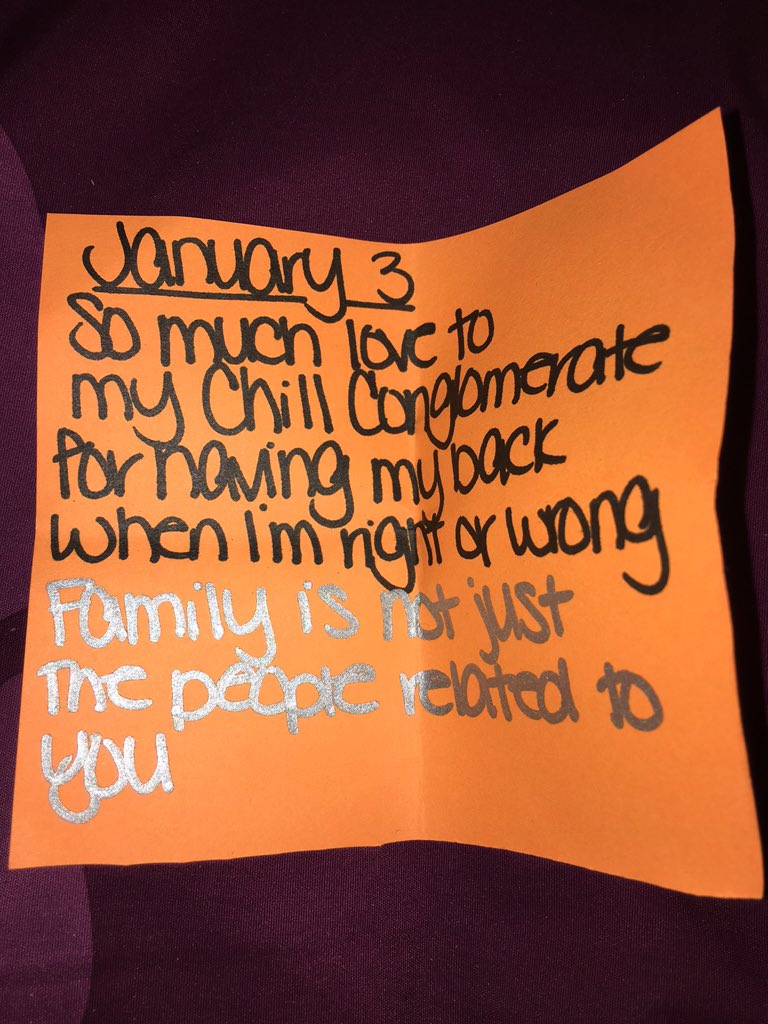 January 3
So much love to
my Chill Conglomerate
for having my back
when I'm right or wrong
Family is not just
The people related to
you